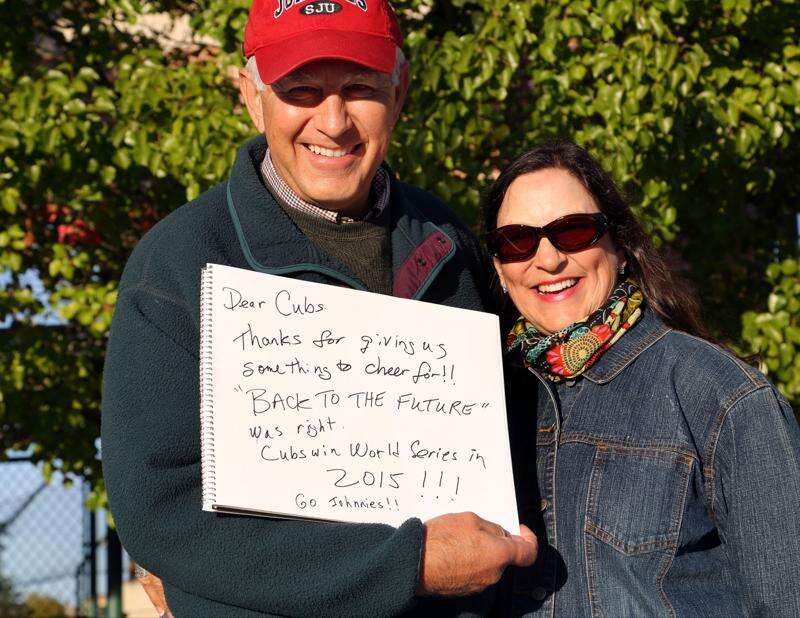 SJU
Dear Cubs
Thanks for giving us
something to cheer for!!
"BACK TO THE FUTURE"
was right.
Cubs win World Series in
2015 !!!
Go Johnnies!!